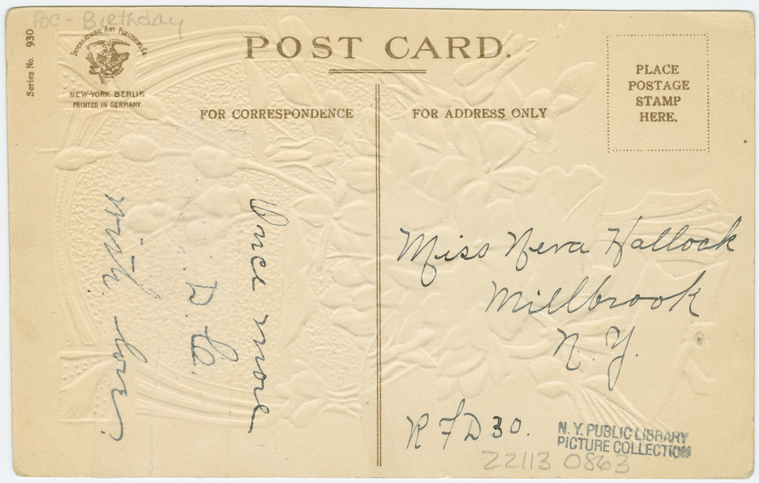 POC - Birthday
Series No. 930
INTERNATIONAL ART PUBLISHING Co.
NEW-YORK BERLIN
PRINTED IN GERMANY
POST CARD.
PLACE
POSTAGE
STAMP
HERE.
FOR CORRESPONDENCE
FOR ADDRESS ONLY
Once more
with love.
Miss Neva Hallock
Millbrook
N. Y.
R F D 30.
N. Y. PUBLIC LIBRARY
PICTURE COLLECTION
22113 0863